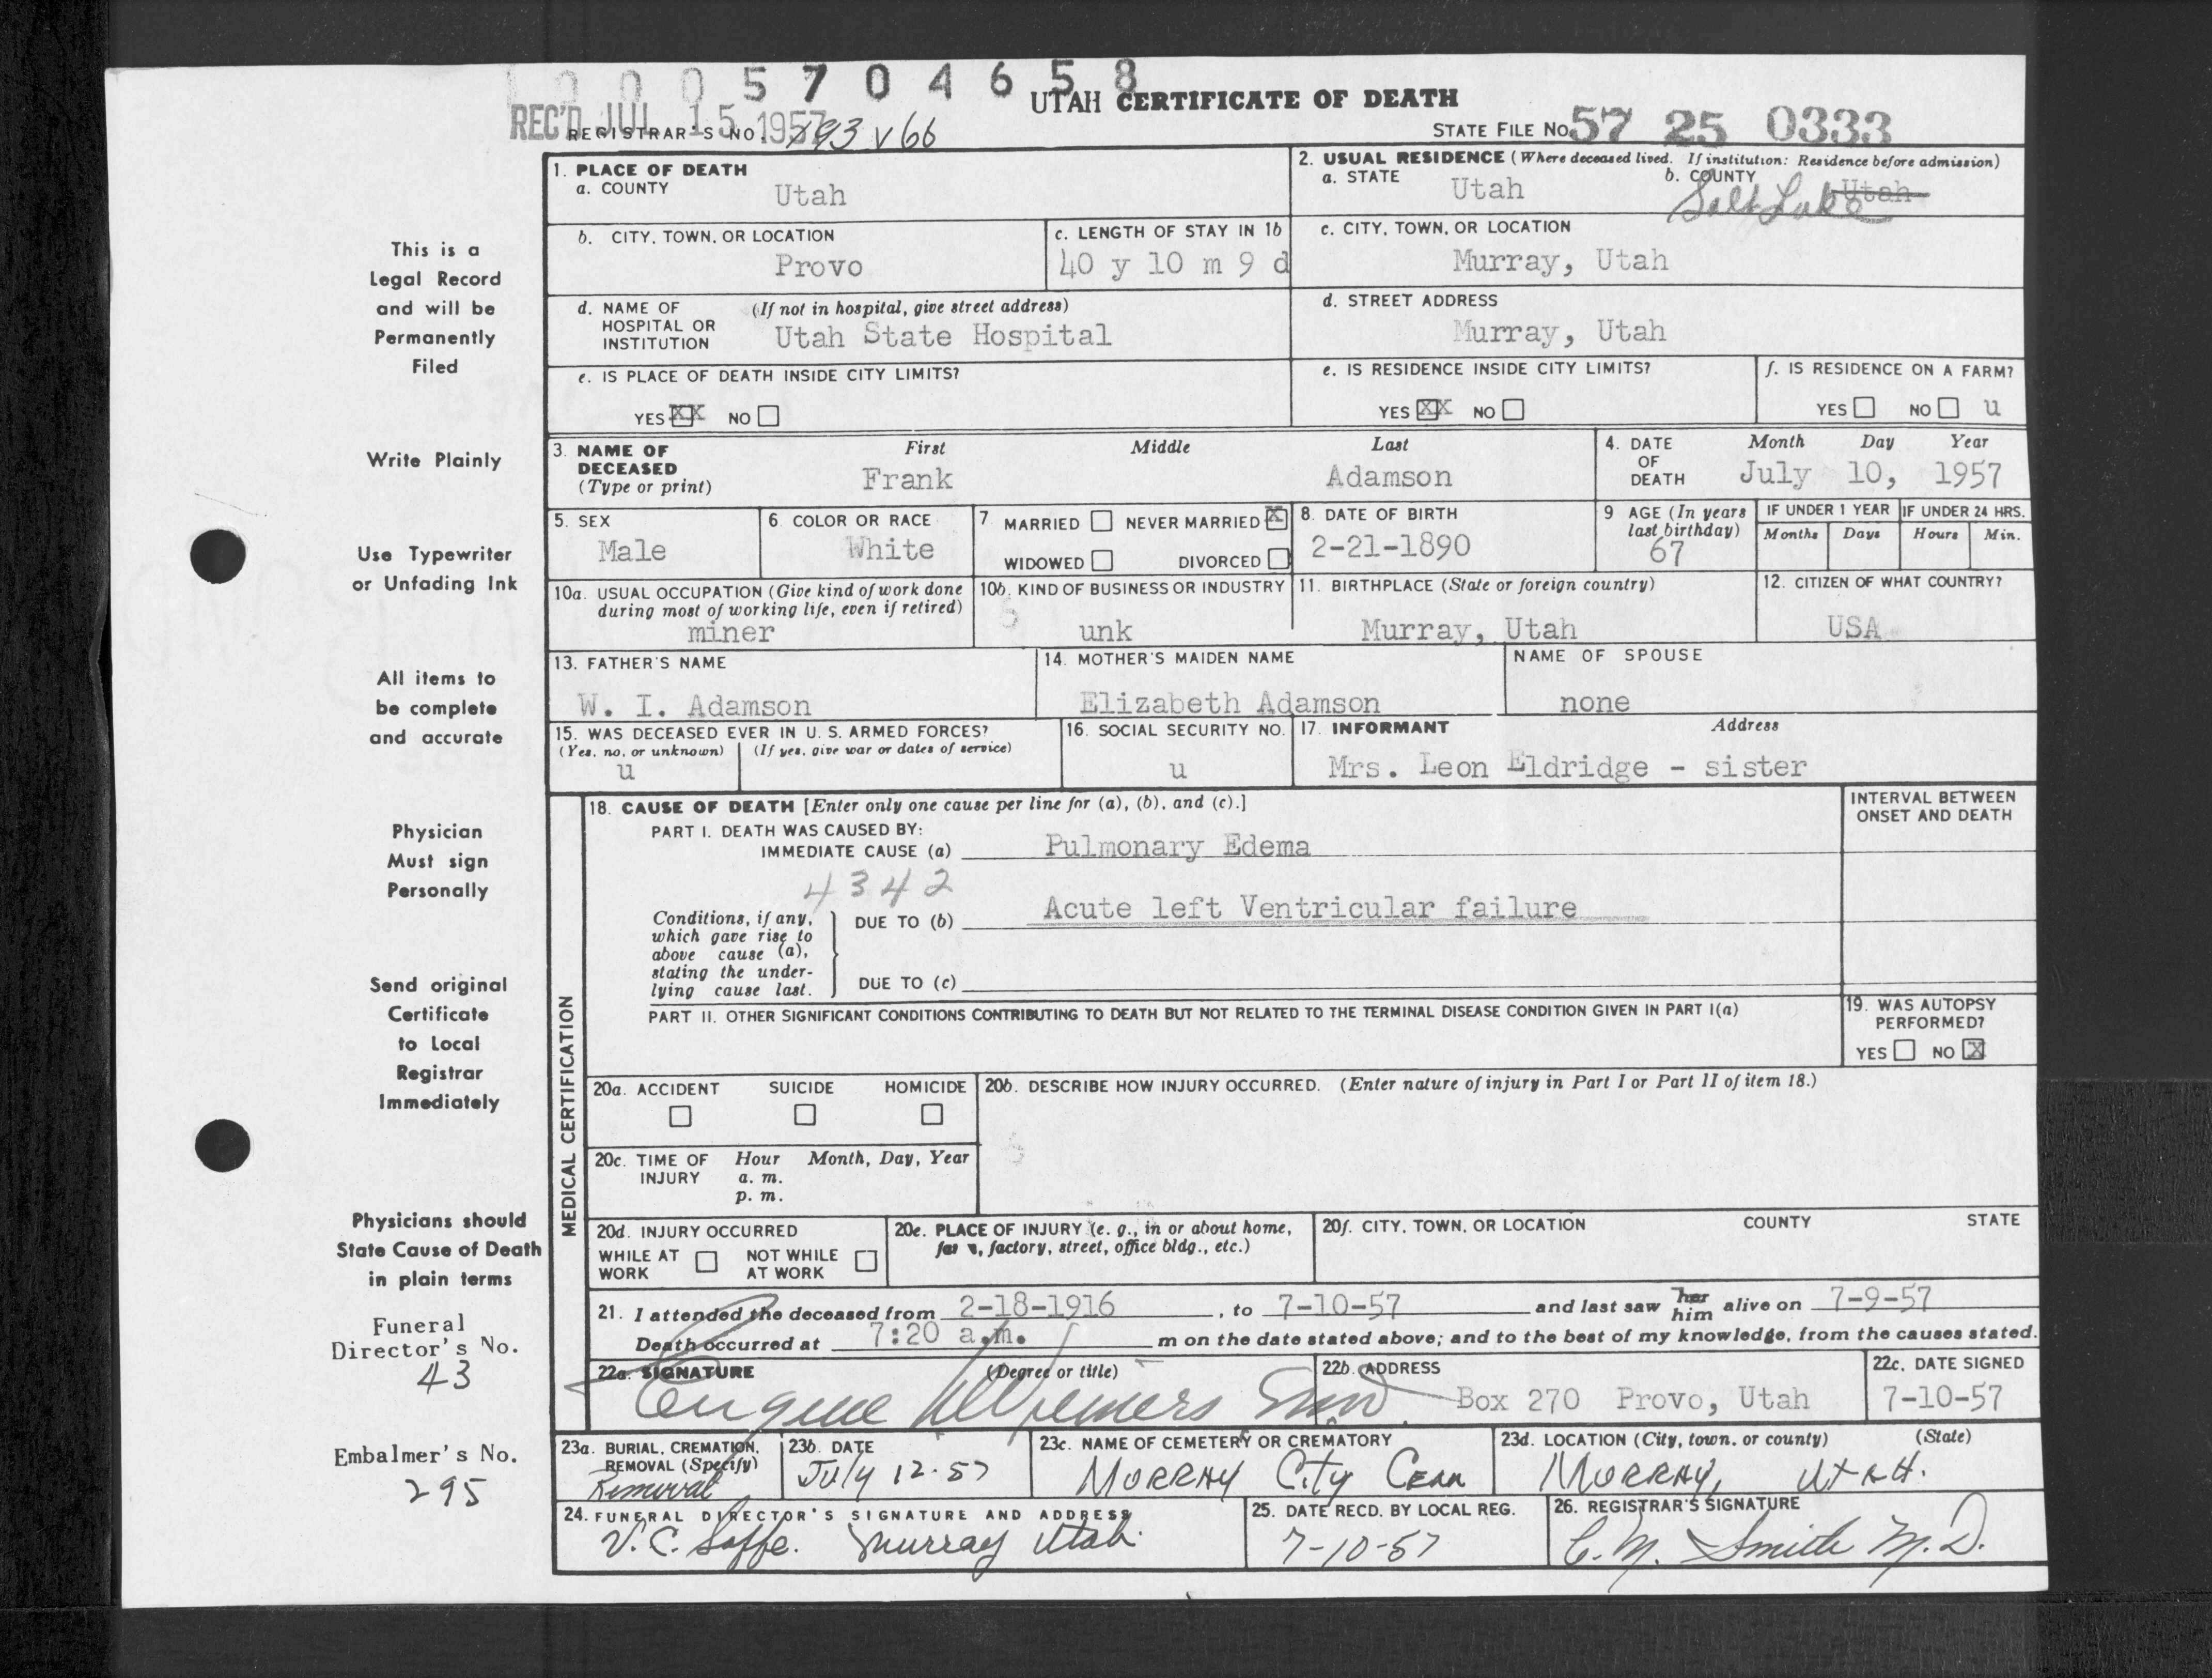 0 0 0 5 7 0 4 6 5 8
UTAH CERTIFICATE OF DEATH
REC'D JUL 15 1957
REGISTRAR'S NO. 293 V66
STATE FILE No. 57 25 0333
1. PLACE OF DEATH
a. COUNTY Utah
2. USUAL RESIDENCE (Where deceased lived. If institution: Residence before admission)
a. STATE Utah b. COUNTY Utah Salt Lake
b. CITY, TOWN, OR LOCATION Provo
c. LENGTH OF STAY IN 1b 40 y 10 m 9 d
c. CITY, TOWN, OR LOCATION Murray, Utah
d. NAME OF HOSPITAL OR INSTITUTION (If not in hospital, give street address) Utah State Hospital
d. STREET ADDRESS Murray, Utah
e. IS PLACE OF DEATH INSIDE CITY LIMITS?
YES XX NO
e. IS RESIDENCE INSIDE CITY LIMITS?
YES XX NO
f. IS RESIDENCE ON A FARM?
YES NO u
3. NAME OF DECEASED (Type or print)
First Middle Last
Frank Adamson
4. DATE OF DEATH
Month Day Year
July 10, 1957
5. SEX Male
6. COLOR OR RACE White
7. MARRIED NEVER MARRIED X
WIDOWED DIVORCED
8. DATE OF BIRTH 2-21-1890
9 AGE (In years last birthday) 67
IF UNDER 1 YEAR Months Days
IF UNDER 24 HRS. Hours Min.
10a. USUAL OCCUPATION (Give kind of work done during most of working life, even if retired) miner
10b. KIND OF BUSINESS OR INDUSTRY unk
11. BIRTHPLACE (State or foreign country) Murray, Utah
12. CITIZEN OF WHAT COUNTRY? USA
13. FATHER'S NAME W. I. Adamson
14. MOTHER'S MAIDEN NAME Elizabeth Adamson
NAME OF SPOUSE none
15. WAS DECEASED EVER IN U. S. ARMED FORCES?
(Yes, no, or unknown) u (If yes, give war or dates of service)
16. SOCIAL SECURITY NO. u
17. INFORMANT Address
Mrs. Leon Eldridge - sister
MEDICAL CERTIFICATION
18. CAUSE OF DEATH [Enter only one cause per line for (a), (b), and (c).]
INTERVAL BETWEEN ONSET AND DEATH
PART I. DEATH WAS CAUSED BY:
IMMEDIATE CAUSE (a) Pulmonary Edema
4342
Conditions, if any, which gave rise to above cause (a), stating the underlying cause last.
DUE TO (b) Acute left Ventricular failure
DUE TO (c)
PART II. OTHER SIGNIFICANT CONDITIONS CONTRIBUTING TO DEATH BUT NOT RELATED TO THE TERMINAL DISEASE CONDITION GIVEN IN PART I(a)
19. WAS AUTOPSY PERFORMED?
YES NO X
20a. ACCIDENT SUICIDE HOMICIDE
20b. DESCRIBE HOW INJURY OCCURRED. (Enter nature of injury in Part I or Part II of item 18.)
20c. TIME OF INJURY Hour a. m. p. m. Month, Day, Year
20d. INJURY OCCURRED
WHILE AT WORK NOT WHILE AT WORK
20e. PLACE OF INJURY (e. g., in or about home, farm, factory, street, office bldg., etc.)
20f. CITY, TOWN, OR LOCATION COUNTY STATE
21. I attended the deceased from 2-18-1916, to 7-10-57 and last saw her him alive on 7-9-57
Death occurred at 7:20 a.m. m on the date stated above; and to the best of my knowledge, from the causes stated.
22a. SIGNATURE (Degree or title)
Eugene
22b. ADDRESS Box 270 Provo, Utah
22c. DATE SIGNED 7-10-57
23a. BURIAL, CREMATION, REMOVAL (Specify) Removal
23b. DATE July 12-57
23c. NAME OF CEMETERY OR CREMATORY Murray City Cem
23d. LOCATION (City, town, or county) (State) Murray, Utah.
24. FUNERAL DIRECTOR'S SIGNATURE AND ADDRESS
V. C. Soffe. Murray Utah.
25. DATE RECD. BY LOCAL REG. 7-10-57
26. REGISTRAR'S SIGNATURE
C. M. Smith M. D.
This is a
Legal Record
and will be
Permanently
Filed
Write Plainly
Use Typewriter
or Unfading Ink
All items to
be complete
and accurate
Physician
Must sign
Personally
Send original
Certificate
to Local
Registrar
Immediately
Physicians should
State Cause of Death
in plain terms
Funeral
Director's No.
43
Embalmer's No.
295